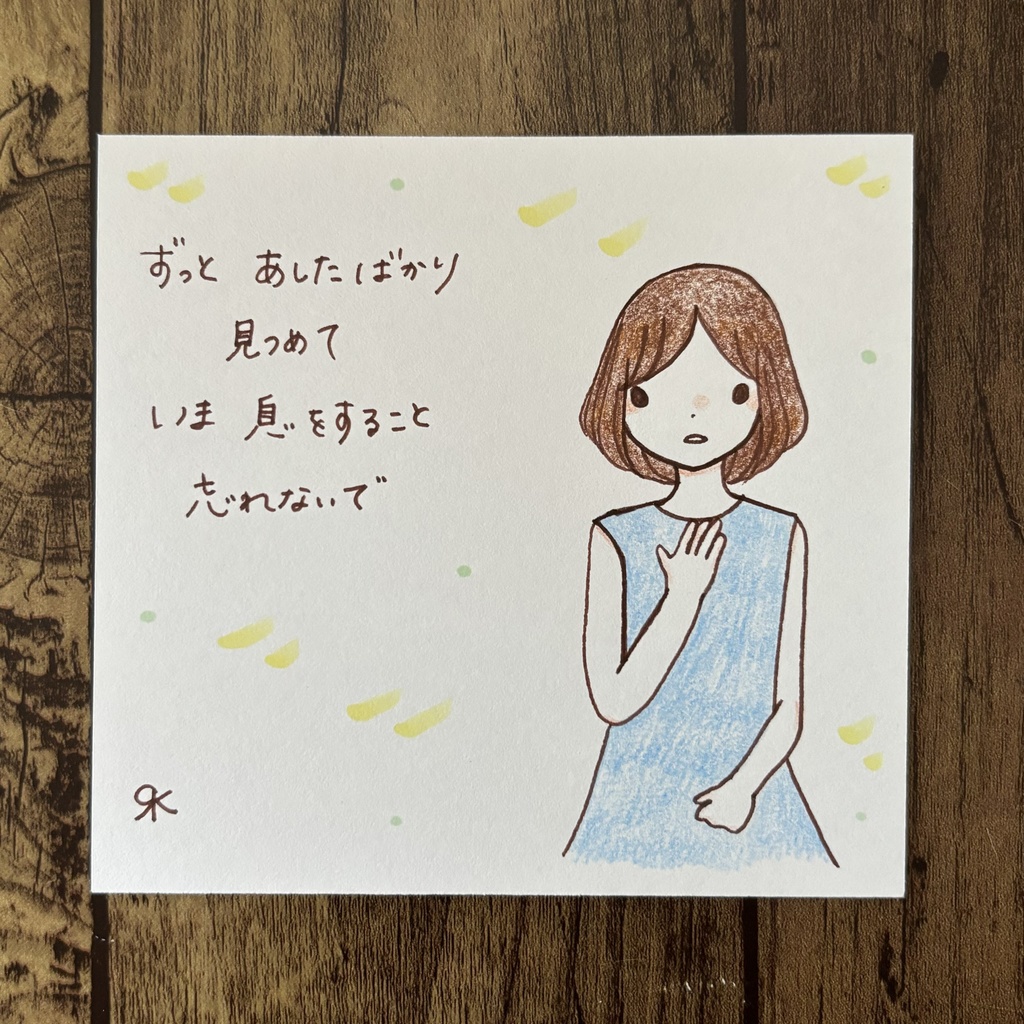 ずっと あしたばかり
見つめて
いま 息をすること
忘れないで